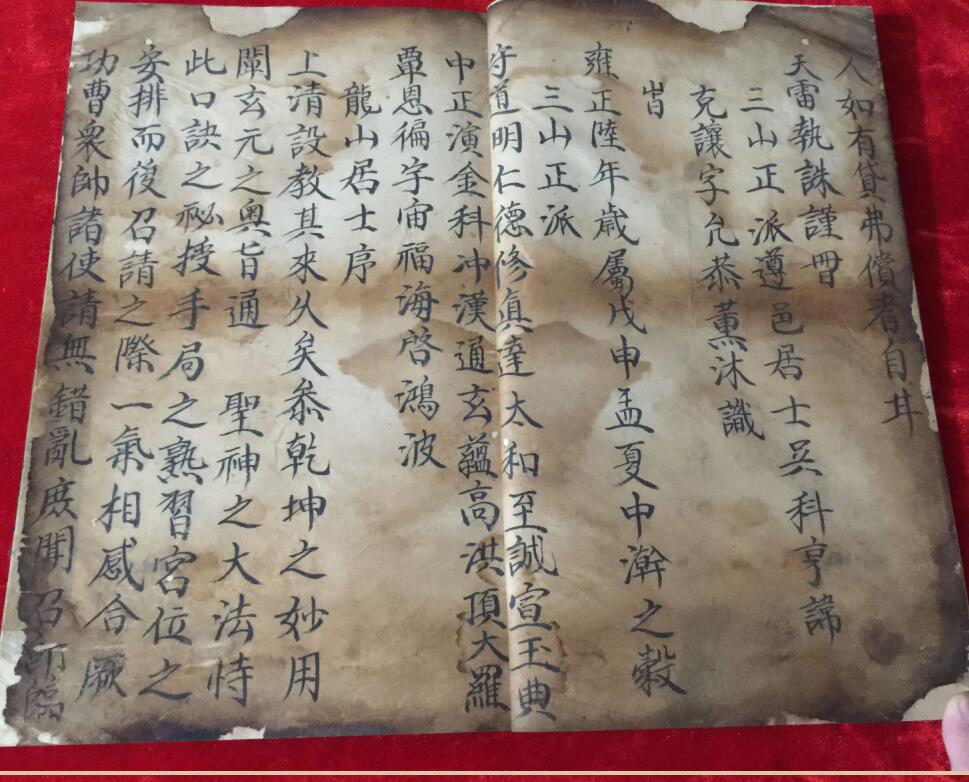 人如有貸弗償者自甘
天雷執誅謹冊
三山正派遵邑居士吳科亨諱
克讓字允恭薰沐識
旹
雍正陸年歲屬戊申孟夏中澣之穀
三山正派
守道明仁德修真達太和至誠宣玉典
中正演金科冲漢通玄蘊高洪頂大羅
覃恩徧宇宙福海啓鴻波
龍山居士序
上清設教其來久矣叅乾坤之妙用
闡玄元之奧旨通 聖神之大法恃
此口訣之祕授手局之熟習宮位之
安排而後召請之際一氣相感合厥
功曹衆帥諸使請無錯亂庶開召而臨